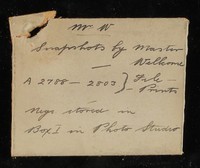 Mr W
Snapshots by Master
Wellcome
—
A 2788 - 2803 } File -
Prints
Negs stored in
Box I in Photo Studio